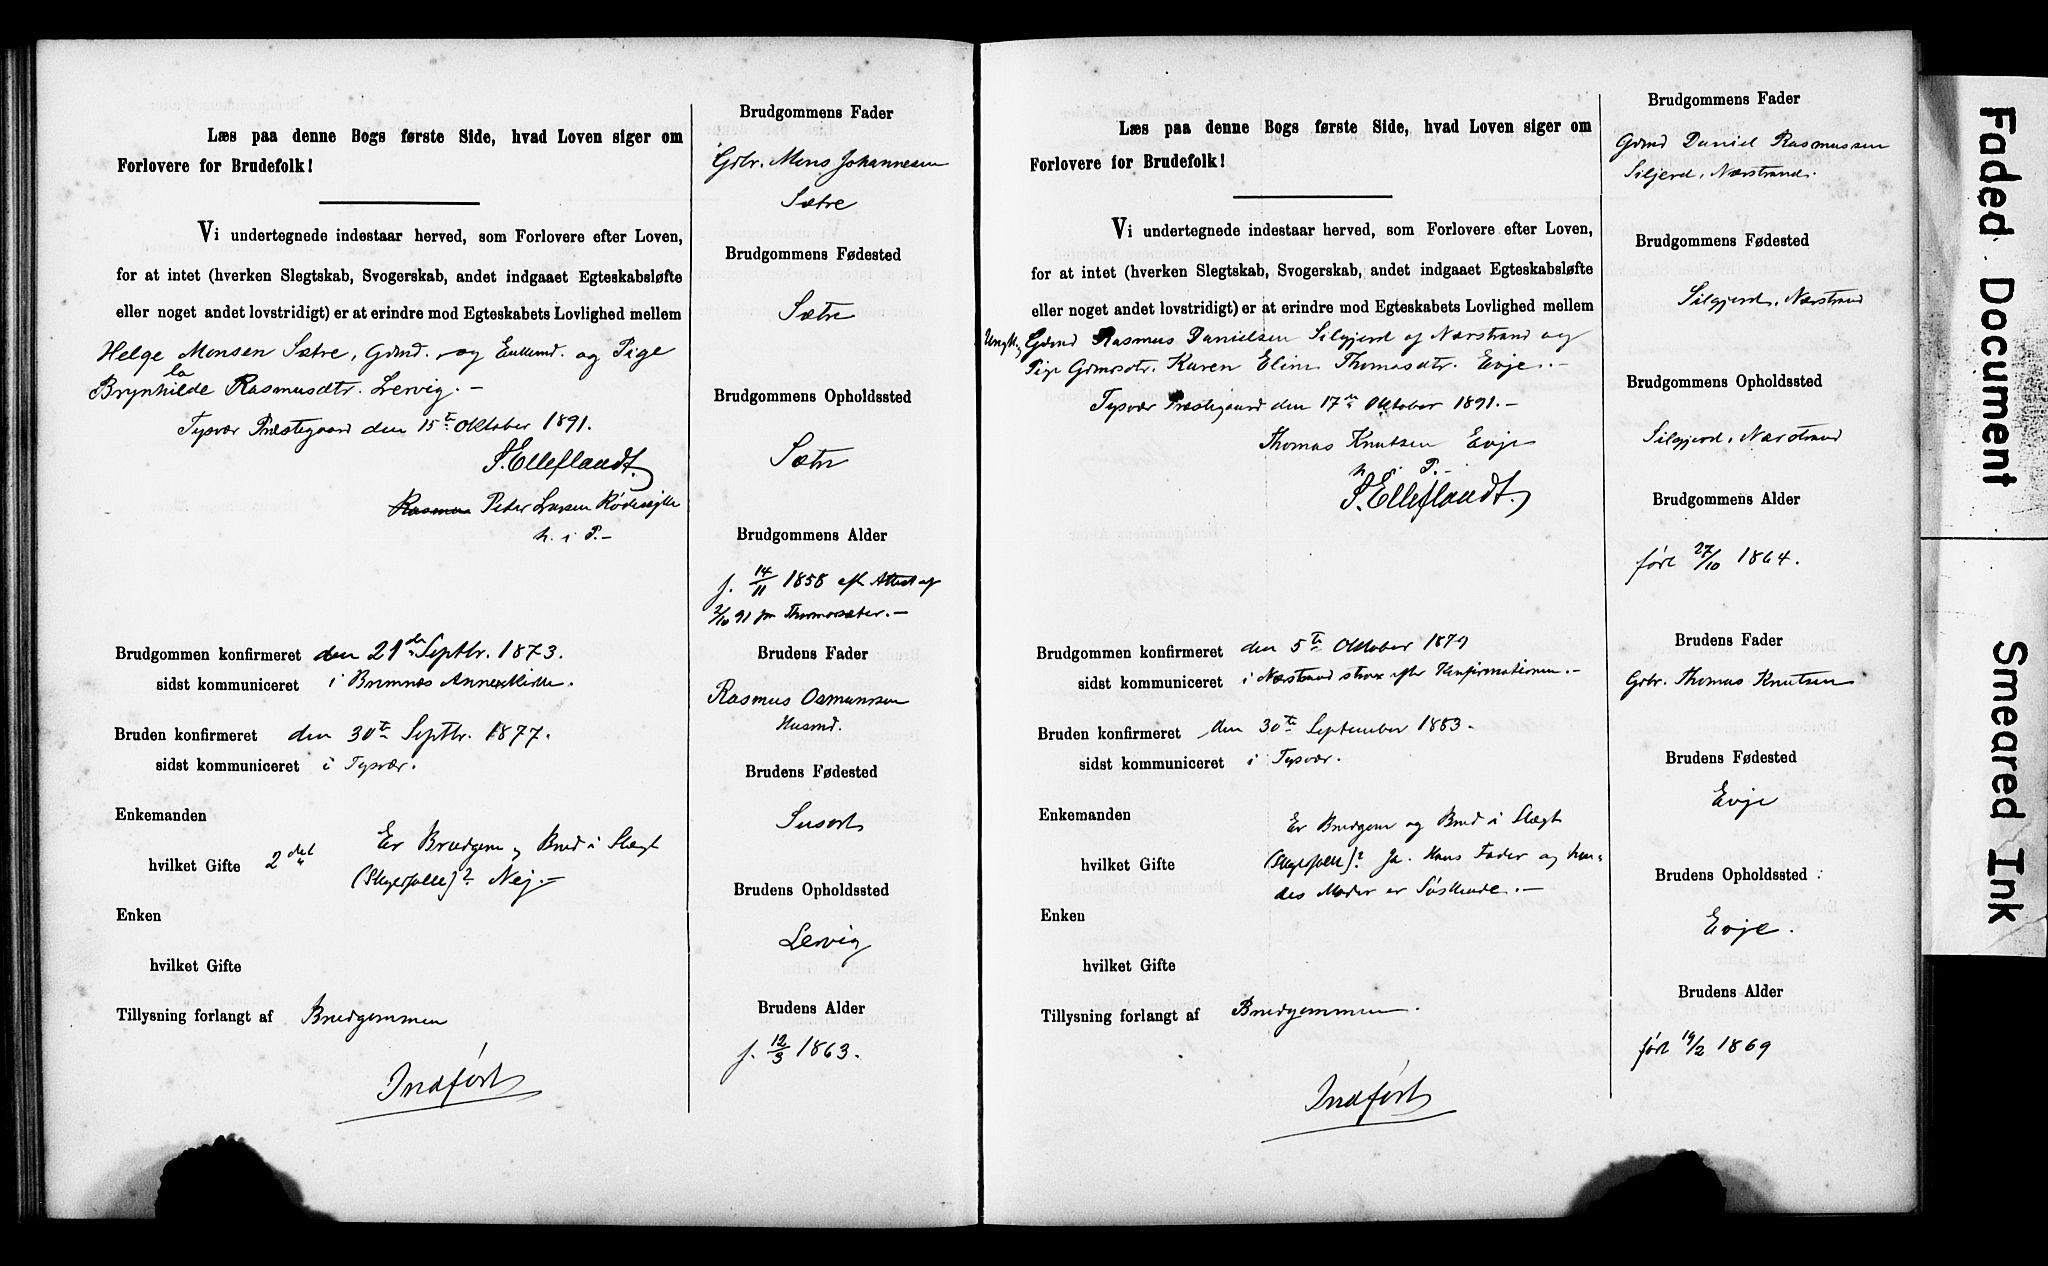 Læs paa denne Bogs første Side, hvad Loven siger om
Forlovere for Brudefolk!
Vi undertegnede indestaar herved, som Forlovere efter Loven,
for at intet (hverken Slegtskab, Svogerskab, andet indgaaet Egteskabsløfte
eller noget andet lovstridigt) er at erindre mod Egteskabets Lovlighed mellem
Helge Monsen Sætre, Gdmd. og Enkemd. og Pige
la
Brynhilde Rasmusdtr. Lervig. —
Tysvær Præstegaard den 15te Oktober 1891.
S. Elleflandt.
Rasmus Peter Larsen
m. i P. —
Brudgommen konfirmeret den 21de Septbr. 1873.
sidst kommuniceret i Bremnes Annexkirke.
Bruden konfirmeret den 30te Septbr. 1877.
sidst kommuniceret i Tysvær.
Enkemanden
hvilket Gifte 2det
Er Brudgom og Brud i Slægt
(Skyldfolk)? Nej. —
Enken
hvilket Gifte
Tillysning forlangt af Brudgommen
Indført
Brudgommens Fader
Gbr. Mons Johannesen
Sætre
Brudgommens Fødested
Sætre
Brudgommens Opholdssted
Sætre
Brudgommens Alder
f. 14/11 1858 efter Attest af
2/10 91 fra
Brudens Fader
Rasmus Osmundsen
Husmd.
Brudens Fødested
Susort
Brudens Opholdssted
Lervig
Brudens Alder
f. 12/3 1863.
Læs paa denne Bogs første Side, hvad Loven siger om
Forlovere for Brudefolk!
Vi undertegnede indestaar herved, som Forlovere efter Loven,
for at intet (hverken Slegtskab, Svogerskab, andet indgaaet Egteskabsløfte
eller noget andet lovstridigt) er at erindre mod Egteskabets Lovlighed mellem
Ungk. og Gdmd Rasmus Danielsen Silgjerd af Nærstrand og
Pige Gdmdsdtr. Karen Eline Thomasdtr. Evje. —
Tysvær Præstegaard den 17de Oktober 1891. —
Thomas Knutsen Evje
m. i P. —
S. Elleflandt.
Brudgommen konfirmeret den 5te Oktober 1879
sidst kommuniceret i Nærstrand strax efter Konfirmationen. —
Bruden konfirmeret den 30te September 1883.
sidst kommuniceret i Tysvær.
Enkemanden
hvilket Gifte
Er Brudgom og Brud i Slægt
(Skyldfolk)? Ja. Hans Fader og hen-
des Moder er Søskende. —
Enken
hvilket Gifte
Tillysning forlangt af Brudgommen.
Indført
Brudgommens Fader
Gdmd Daniel Rasmussen
Siljerd, Nærstrand.
Brudgommens Fødested
Silgjerd, Nærstrand
Brudgommens Opholdssted
Silgjerd, Nærstrand
Brudgommens Alder
født 27/10 1864.
Brudens Fader
Gbr. Thomas Knutsen
Brudens Fødested
Evje
Brudens Opholdssted
Evje.
Brudens Alder
født 19/2 1869
Faded Document
Smeared Ink